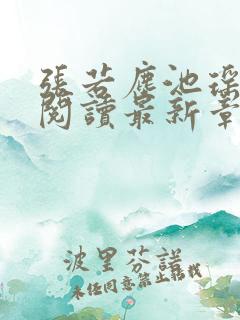 張若塵池瑤
閱讀最新章
波里芬諾
未經同意禁止轉載